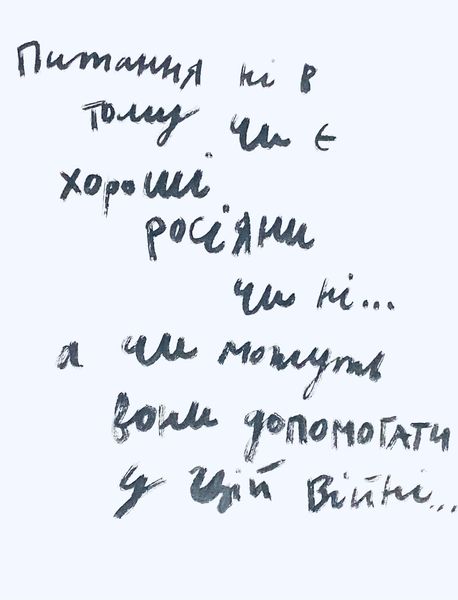 Питання ні в
тому чи є
хороші
росіяни
чи ні...
а чи можуть
вони допомогати
у цій війні...